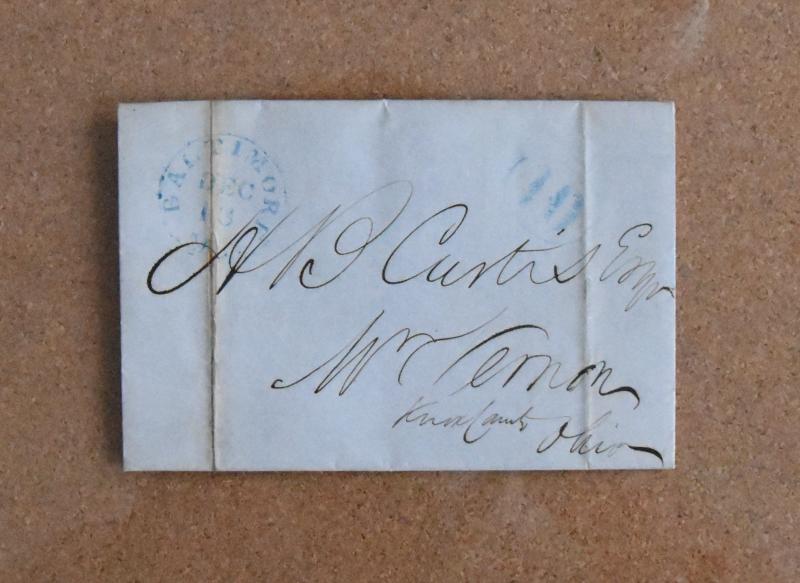 BALTIMORE
DEC
18
10
H B Curtis Esqr
Mt Vernon
Knox County
Ohio